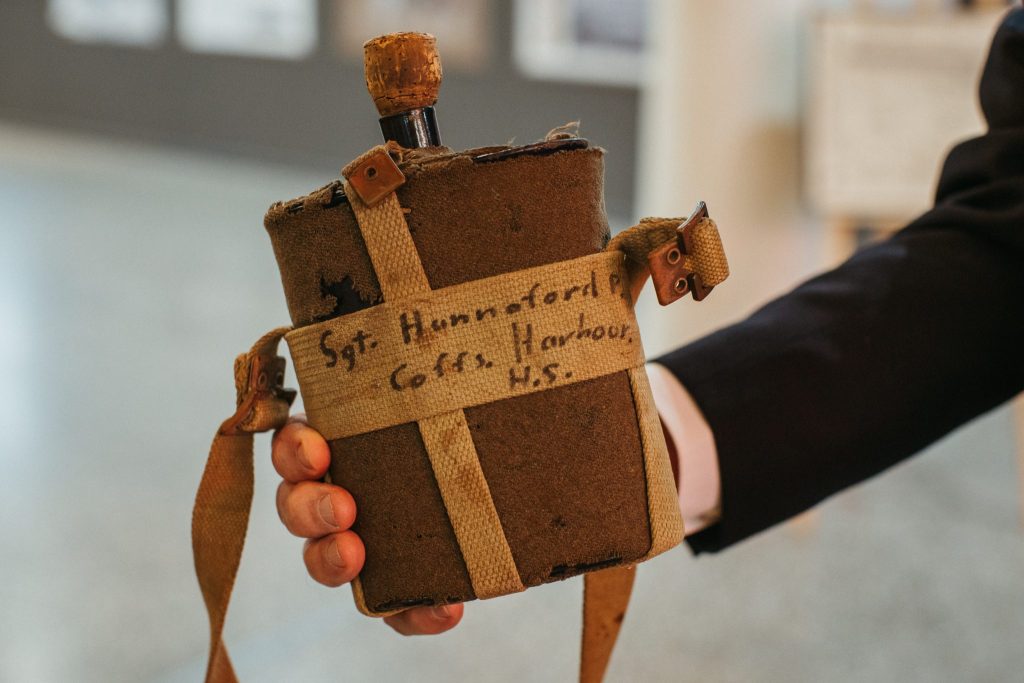 Sgt. Hannaford P.
Coffs. Harbour.
H.S.